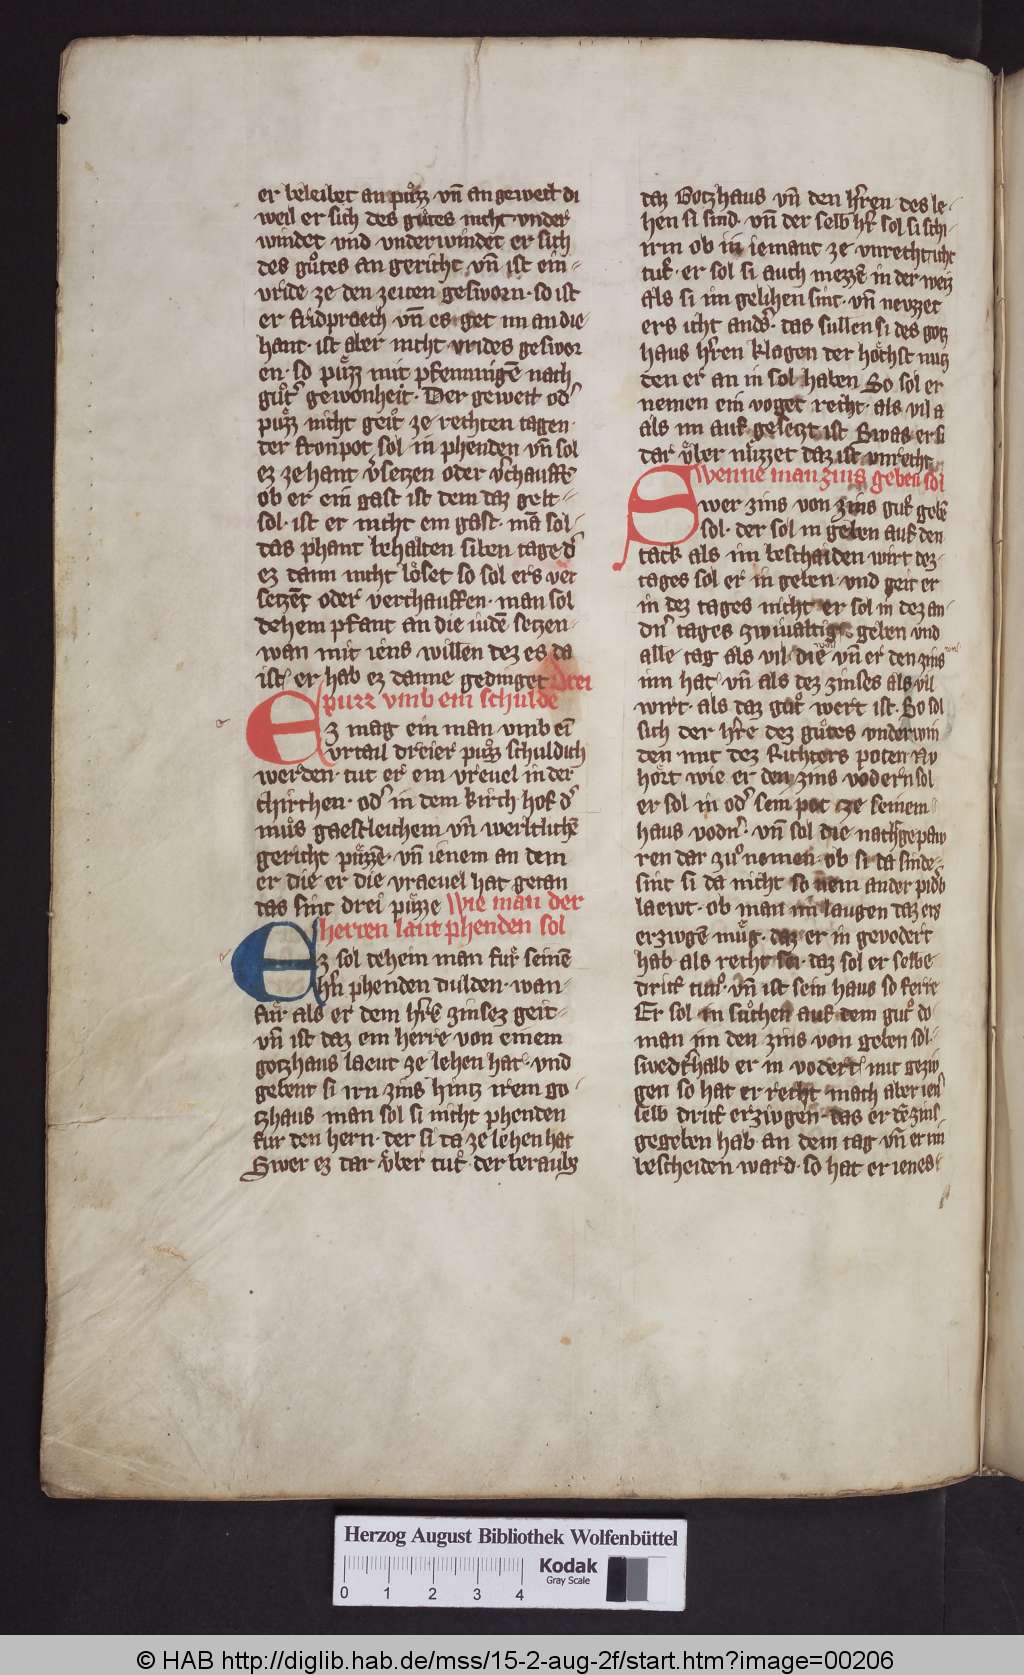 er beleibet an puͦzz vn̄ an gewett di
weil er sich des guͦtes nicht vnder
windet vnd vnderwindet er sich
des guͦtes an gericht vn̄ ist ein
vride ze den zeiten gesworn· so ist
er fridpraech vn̄ es get im an die
hant· ist aber nicht vrides geswor
en· so puͤzz mit pfenningē nach
guͦt gewonheit· Der gewett od
puͤzz nicht geit ze rechten tagen·
der fronpot sol in phenden vn̄ sol
ez ze hant vsetzen oder vchauffē
ob er ein gast ist dem daz gelt
sol· ist er nicht ein gast· mā sol
das phant behalten siben tage
ez dann nicht loͤset so sol ers ver
setzen oder verchauffen· man sol
dehem pfant an die iudē setzen
wan mit iens willen dez es da
ist er hab ez danne gedinget Drei
purr vmb ein schulde
Ez mag ein man vmb eī
vrtail dreier puͤzz schuldich
werden· tut er ein vreuel in der
chirchen· od in dem kirch hof
muͦs gaestleichem vn̄ werltlichē
gericht puͤzzē· vn̄ ienem an dem
er die er die vraeuel hat getan
das sint drei puͤzze Wie man der
herren laut phenden sol
Ez sol dehein man fuͤr seinē
hrn phenden dulden· wan
fuͤr als er dem hrē zinsez geit
vn̄ ist daz ein herre von einem
gotzhaus laeut ze lehen hat· vnd
gebent si irn zins hintz irem go
tzhaus man sol si nicht phenden
fur den hern· der si da ze lehen hat
Swer ez dar vber tut· der beraubt
daz Gotzhaus vn̄ den hren des le
hen si sind· vn̄ der selb hr sol si schi
rm ob in iemant ze vnrecht icht
tut· er sol si auch mezzē in der weiz
Als si im gelihen sint· vn̄ nevzzet
ers icht anders· das sullen si des gotz
haus hren klagen der hoͤchst nutz
den er an in sol haben So sol er
nemen ein voget recht· als vil
als im auf gesetzt ist Swas er si
dar vͤber nuͤzzet daz ist vnrecht
Swenne man zins geben sol
Swer zins von zins gut gebē
sol· der sol in geben auf den
tack als im beschaiden wirt dez
tages sol er in geben· vnd geit er
in dez tages nicht er sol in dez an
dn tages zwivaltig geben vnd
alle tag als vil· die vn̄ er den zins
im hat vn̄ als dez zinses als vil
wirt· als daz guͦt wert ist· So sol
sich der hre dez guͦtes vnderwin
den mit dez Richters poten Nv
hoͤrt wie er den zins vodern sol
er sol in od sein pot ze seinem
haus vodn· vn̄ sol die nachgepaw
ren dar zuͦ nemen· ob si da sinde
sint si da nicht so nem ander pidb
laewt· ob man im laugen daz ers
erzwgē muͤg· daz er in gevodert
hab als recht sei· daz sol er selbe
dritt tun· vn̄ ist sein haus so ferre
Er sol in suͦchen auf dem gut do
man im den zins von geben sol·
swedrhalb er in vodert mit geziv
gen so hat er recht· mach aber ien
selb dritt erzwgen· das er dē zins
gegeben hab an dem tag vn̄ er im
bescheiden ward· so hat er ienes
Herzog August Bibliothek Wolfenbüttel
Kodak
Gray Scale
0 1 2 3 4
© HAB http://diglib.hab.de/mss/15-2-aug-2f/start.htm?image=00206